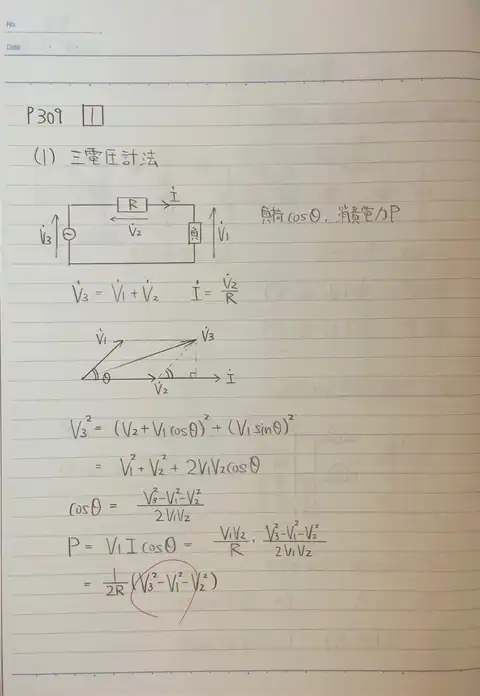 No.
Date
P309 1
(1) 三電圧計法
R İ
V̇3 V̇2 負 V̇1
負荷cosθ, 消費電力P
V̇3 = V̇1 + V̇2 İ = V̇2/R
V̇1 V̇3
θ V̇2 İ
V3² = (V2+V1cosθ)² + (V1sinθ)²
= V1² + V2² + 2V1V2cosθ
cosθ = (V3²-V1²-V2²)/(2V1V2)
P = V1Icosθ = V1V2/R · (V3²-V1²-V2²)/(2V1V2)
= 1/2R (V3²-V1²-V2²)